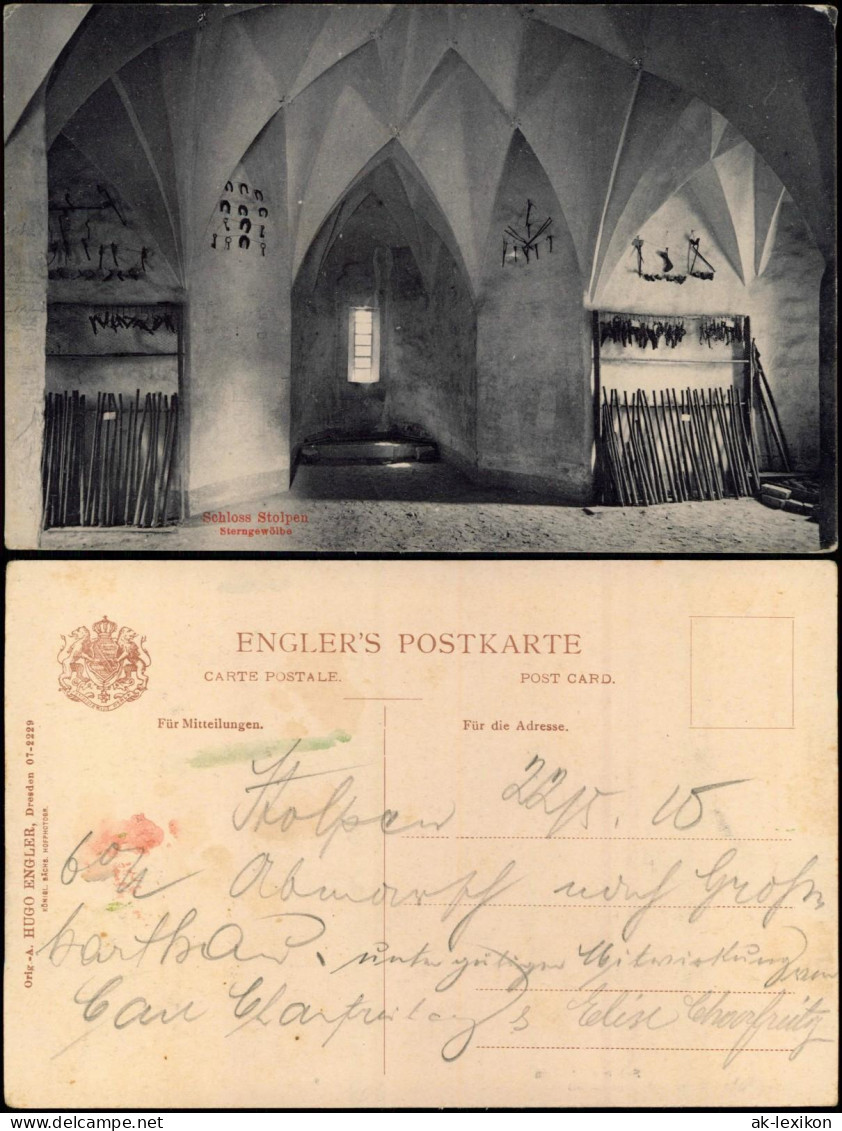 Schloss Stolpen
Sterngewölbe
ENGLER'S POSTKARTE
CARTE POSTALE. POST CARD.
Für Mitteilungen. Für die Adresse.
Orig.-A. HUGO ENGLER, Dresden 07-2229
KÖNIGL. SÄCHS. HOFPHOTOGR.
Stolpen 22/5. 15
Abmarsch nach Groß
harthau, unter gütiger Mitwirkung von
Elise
www.ansichtskarten-lexikon.de
ak-lexikon